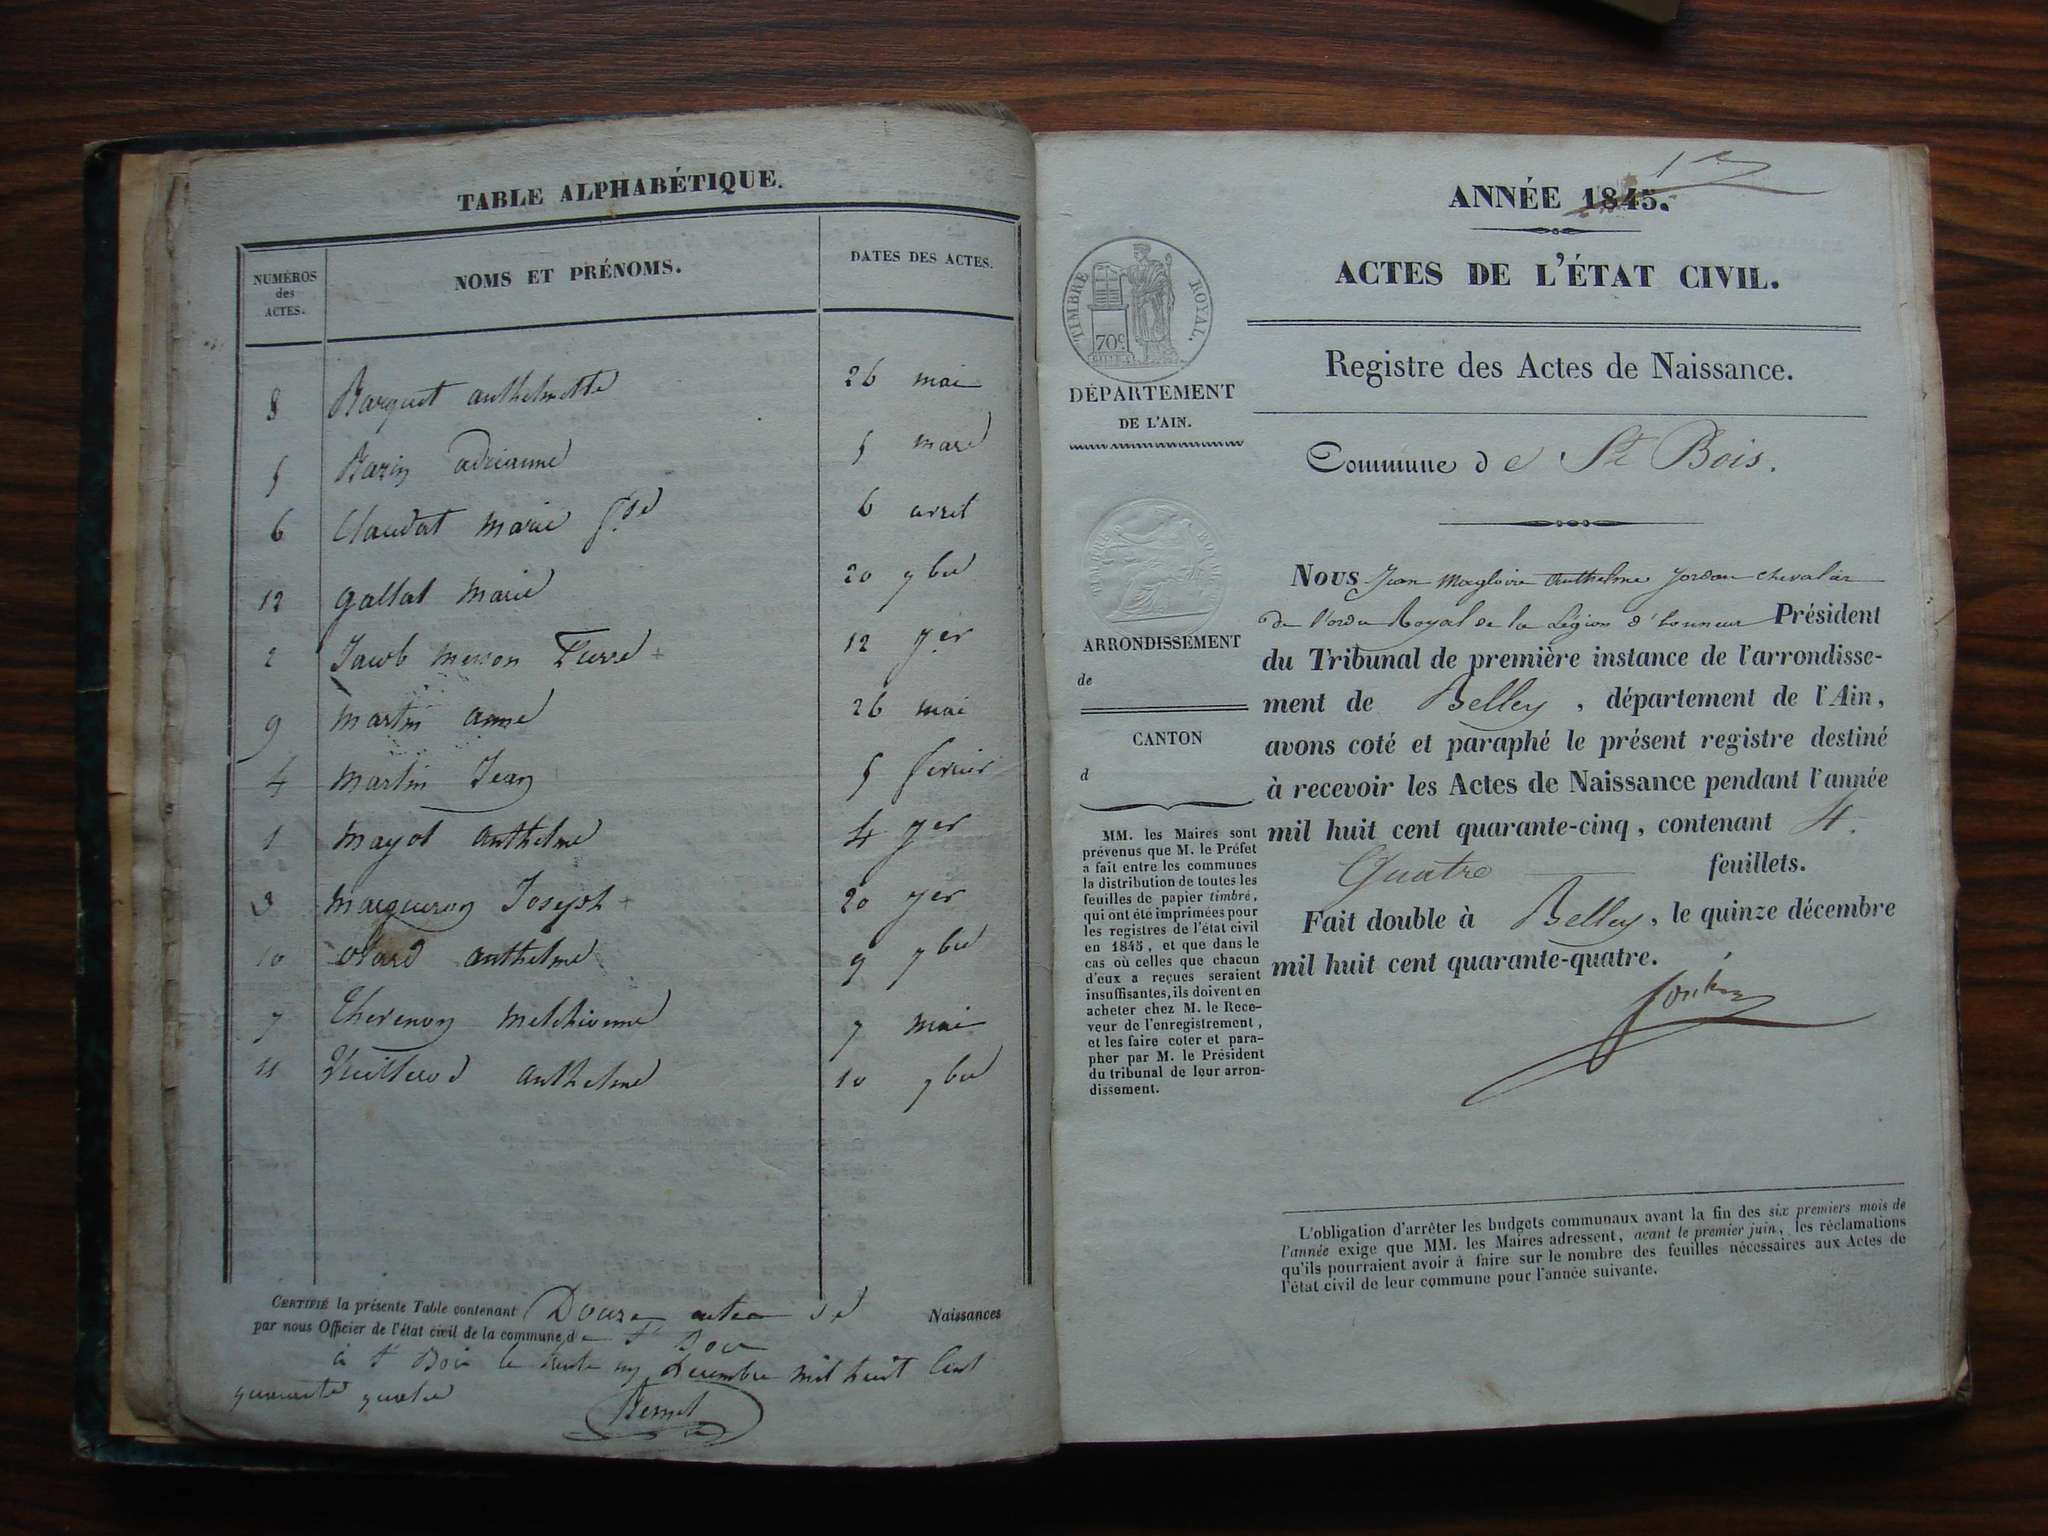 TABLE ALPHABÉTIQUE.
NUMÉROS des ACTES.
NOMS ET PRÉNOMS.
DATES DES ACTES.
8 Barquet anthelmette 26 mai
5 Bazin adrianne 5 mars
6 Claudat marie 6 avril
12 gallat marie 20 9bre
2 Jacob Pierre + 12 Jer
9 martin anne 26 mai
4 martin Jean 5 fevrier
1 mayot anthelme 4 Jer
3 Joseph + 20 Jer
10 anthelme 9 9bre
7 Thevenon 7 mai
11 anthelme 10 9bre
CERTIFIÉ la présente Table contenant Douze actes de Naissances
par nous Officier de l'état civil de la commune de St Bois
à St Bois le trente un decembre mil huit cent
quarante quatre
ANNÉE 1845.
ACTES DE L'ÉTAT CIVIL.
Registre des Actes de Naissance.
Commune de St Bois.
TIMBRE ROYAL.
70c
DÉPARTEMENT
DE L'AIN.
ARRONDISSEMENT
de
CANTON
d
MM. les Maires sont
prévenus que M. le Préfet
a fait entre les communes
la distribution de toutes les
feuilles de papier timbré,
qui ont été imprimées pour
les registres de l'état civil
en 1845, et que dans le
cas où celles que chacun
d'eux a reçues seraient
insuffisantes, ils doivent en
acheter chez M. le Rece-
veur de l'enregistrement,
et les faire coter et para-
pher par M. le Président
du tribunal de leur arron-
dissement.
Nous Jean Magloire Anthelme Jordan chevalier
de l'ordre Royal de la Légion d'honneur Président
du Tribunal de première instance de l'arrondisse-
ment de Belley, département de l'Ain,
avons coté et paraphé le présent registre destiné
à recevoir les Actes de Naissance pendant l'année
mil huit cent quarante-cinq, contenant 4.
Quatre feuillets.
Fait double à Belley, le quinze décembre
mil huit cent quarante-quatre.
L'obligation d'arrêter les budgets communaux avant la fin des six premiers mois de
l'année exige que MM. les Maires adressent, avant le premier juin, les réclamations
qu'ils pourraient avoir à faire sur le nombre des feuilles nécessaires aux Actes de
l'état civil de leur commune pour l'année suivante.